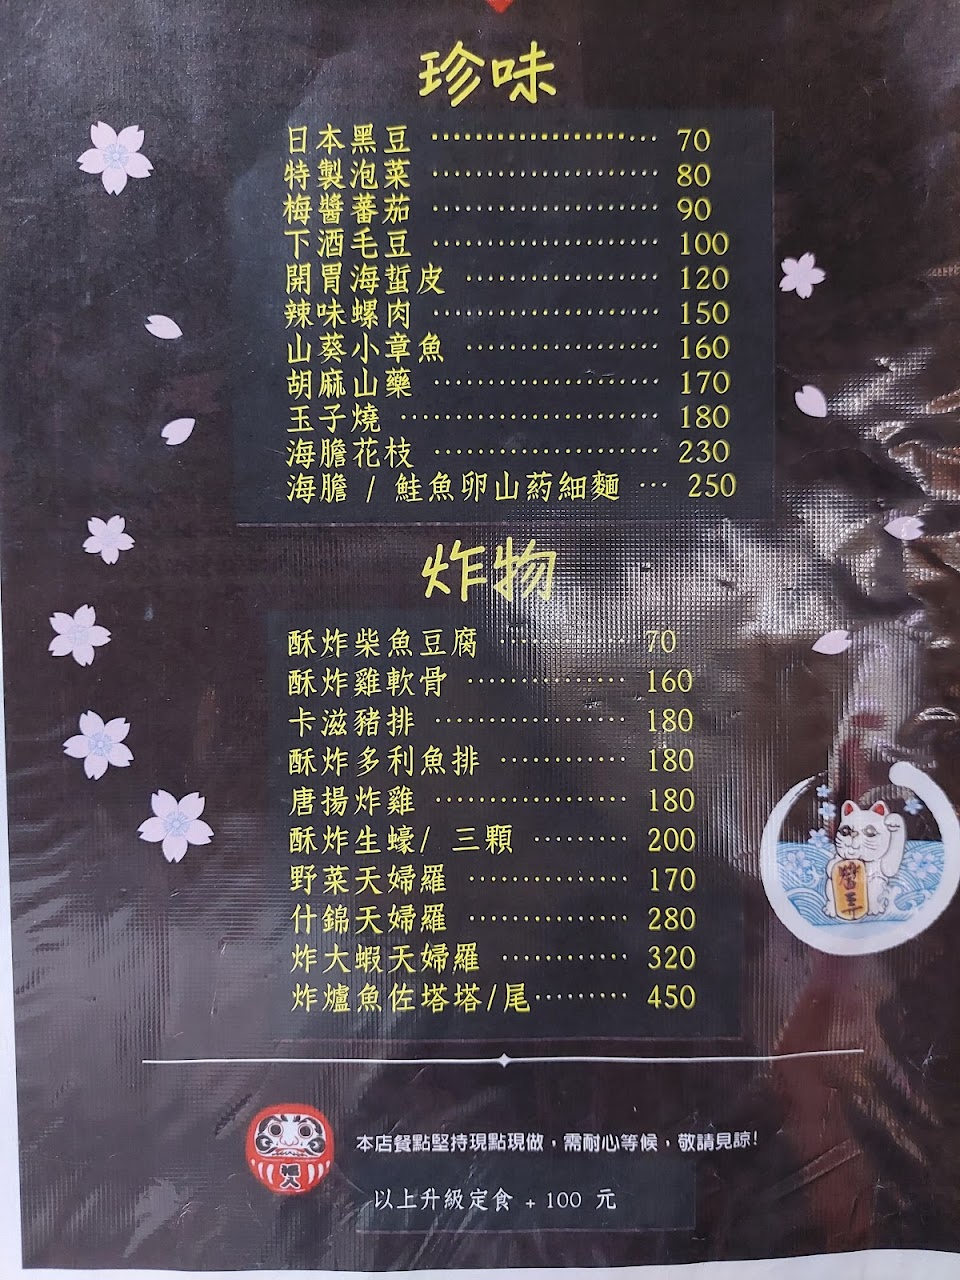 珍味
日本黑豆 ………………… 70
特製泡菜 ………………… 80
梅醬蕃茄 ………………… 90
下酒毛豆 ………………… 100
開胃海蜇皮 ……………… 120
辣味螺肉 ………………… 150
山葵小章魚 ……………… 160
胡麻山藥 ………………… 170
玉子燒 …………………… 180
海膽花枝 ………………… 230
海膽 / 鮭魚卵山葯細麵 … 250
炸物
酥炸柴魚豆腐 ………… 70
酥炸雞軟骨 …………… 160
卡滋豬排 ……………… 180
酥炸多利魚排 ………… 180
唐揚炸雞 ……………… 180
酥炸生蠔/ 三顆 ……… 200
野菜天婦羅 …………… 170
什錦天婦羅 …………… 280
炸大蝦天婦羅 ………… 320
炸爐魚佐塔塔/尾……… 450
本店餐點堅持現點現做，需耐心等候，敬請見諒!
以上升級定食 + 100 元